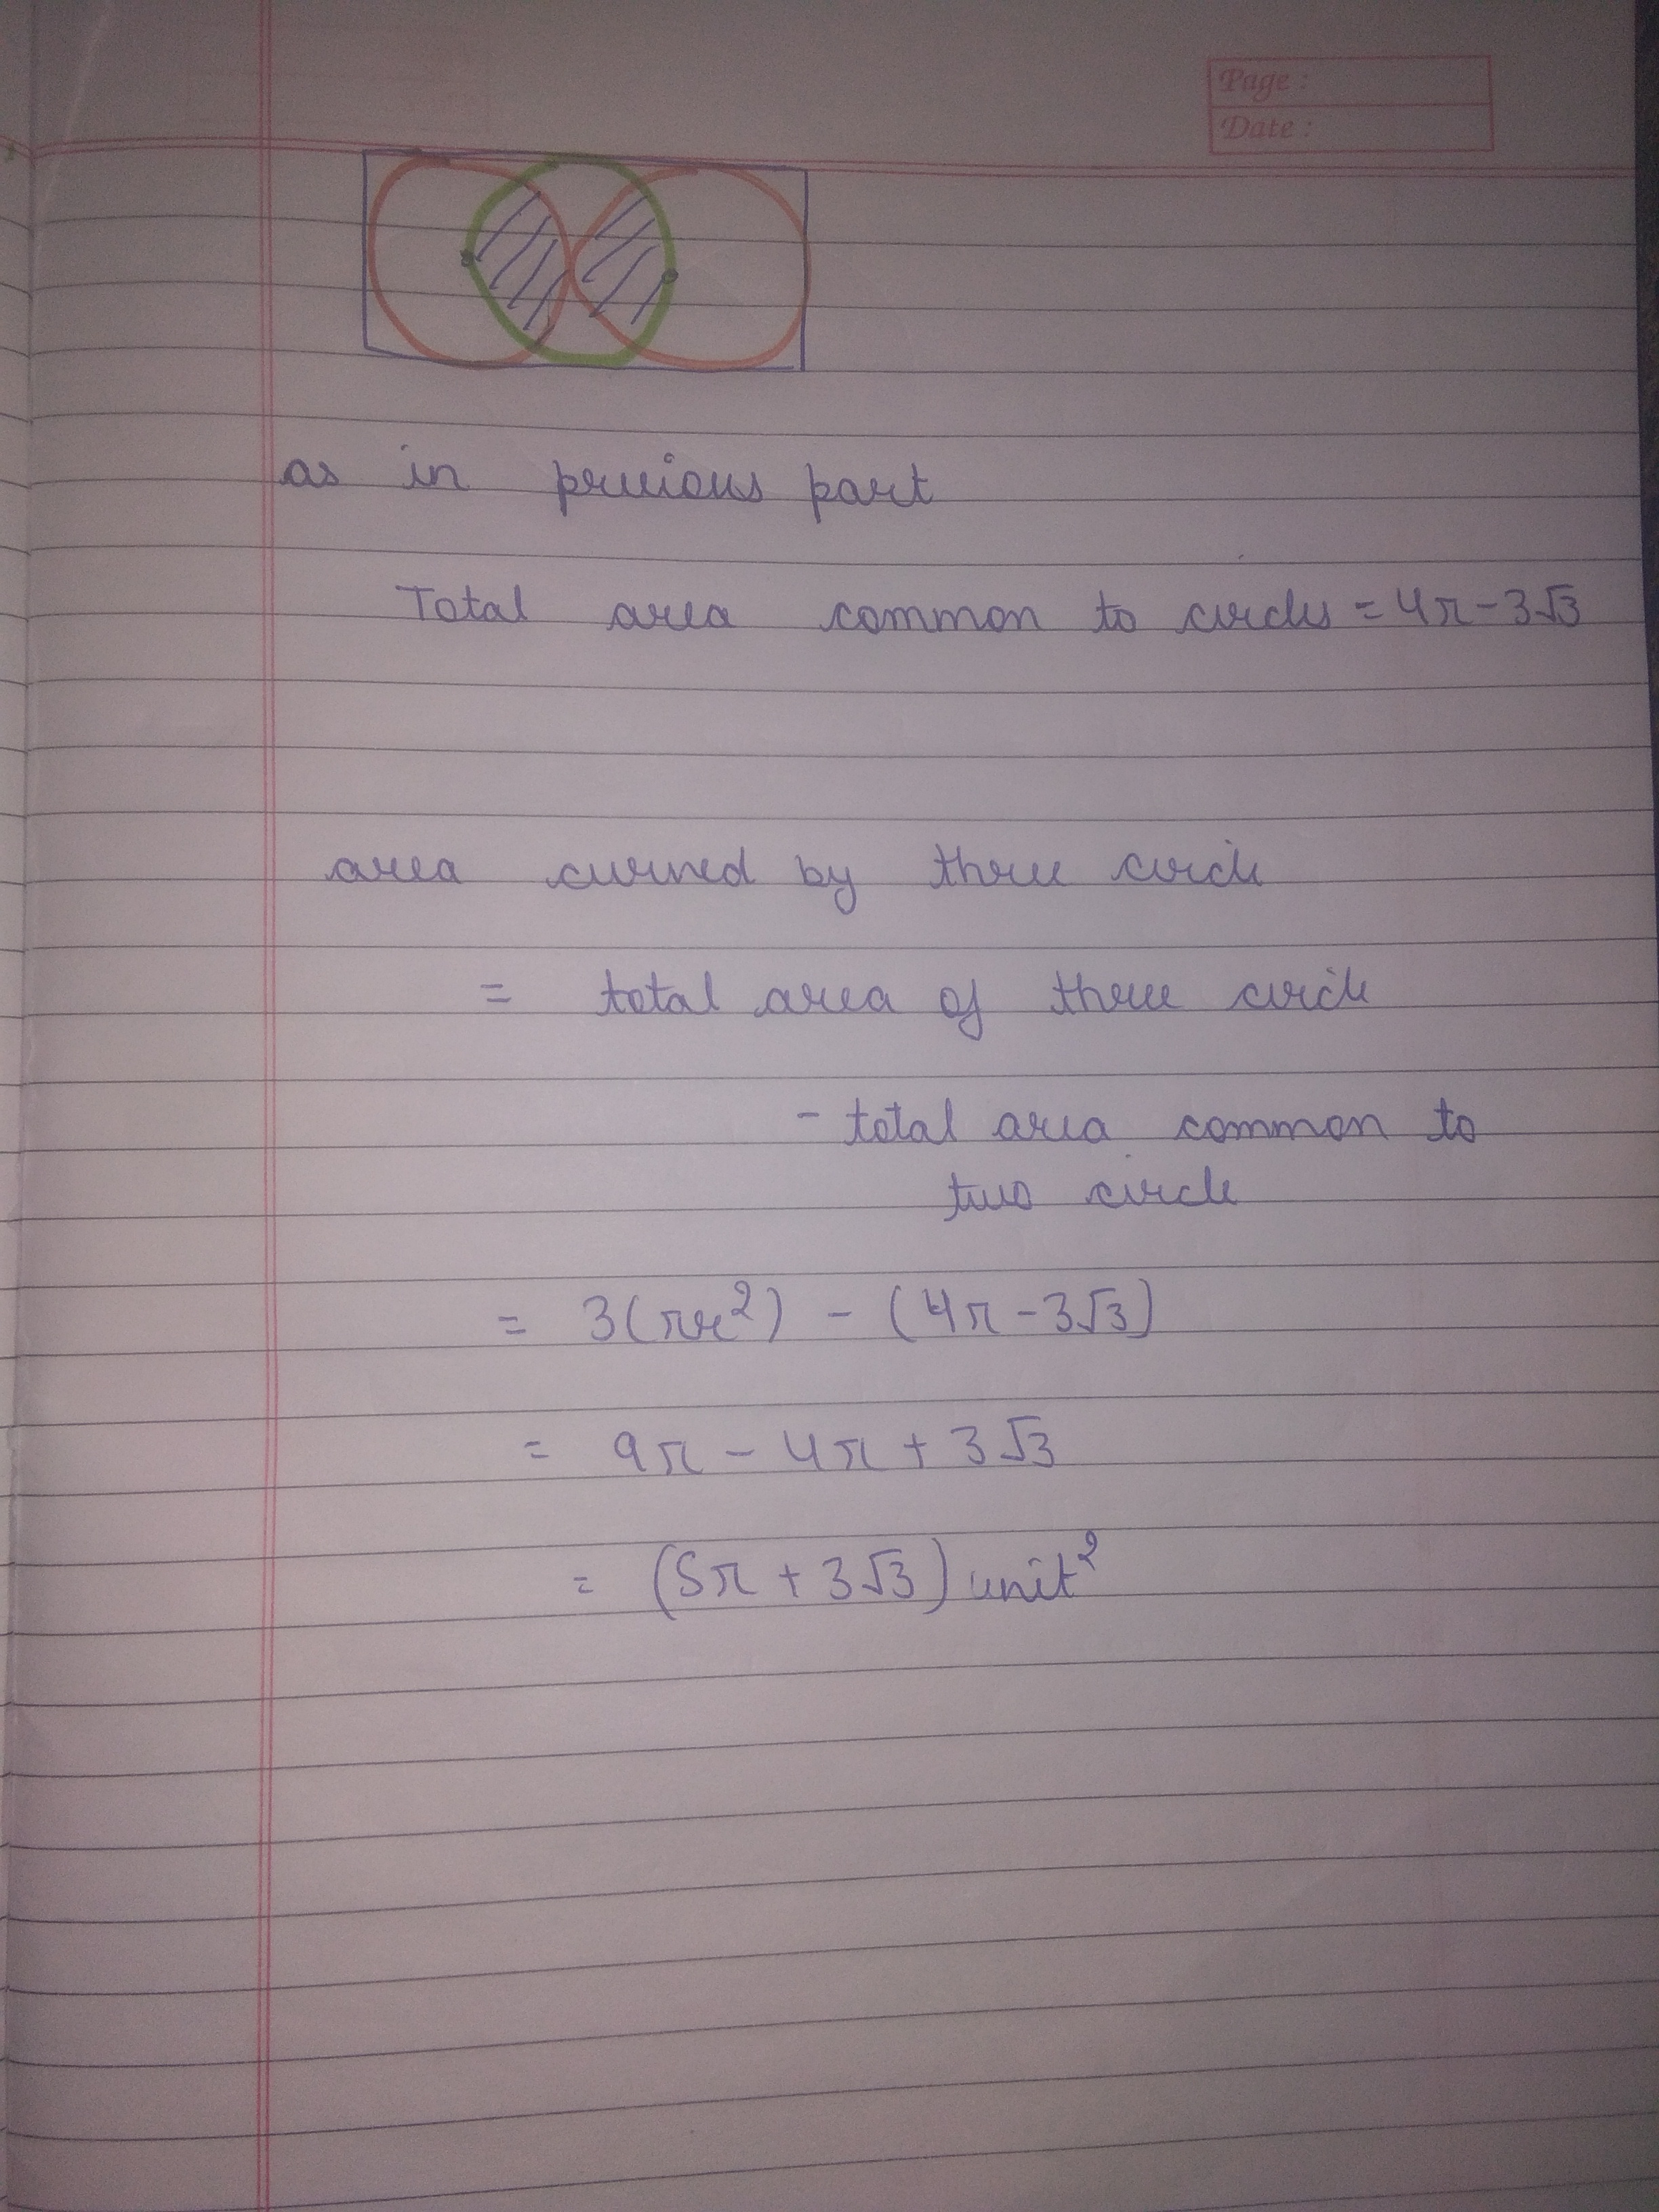 Page :
Date :
as in previous part
Total area common to circles = 4π - 3√3
area curned by three circle
= total area of three circle
- total area common to
two circle
= 3(πr²) - (4π - 3√3)
= 9π - 4π + 3√3
= (5π + 3√3) unit²